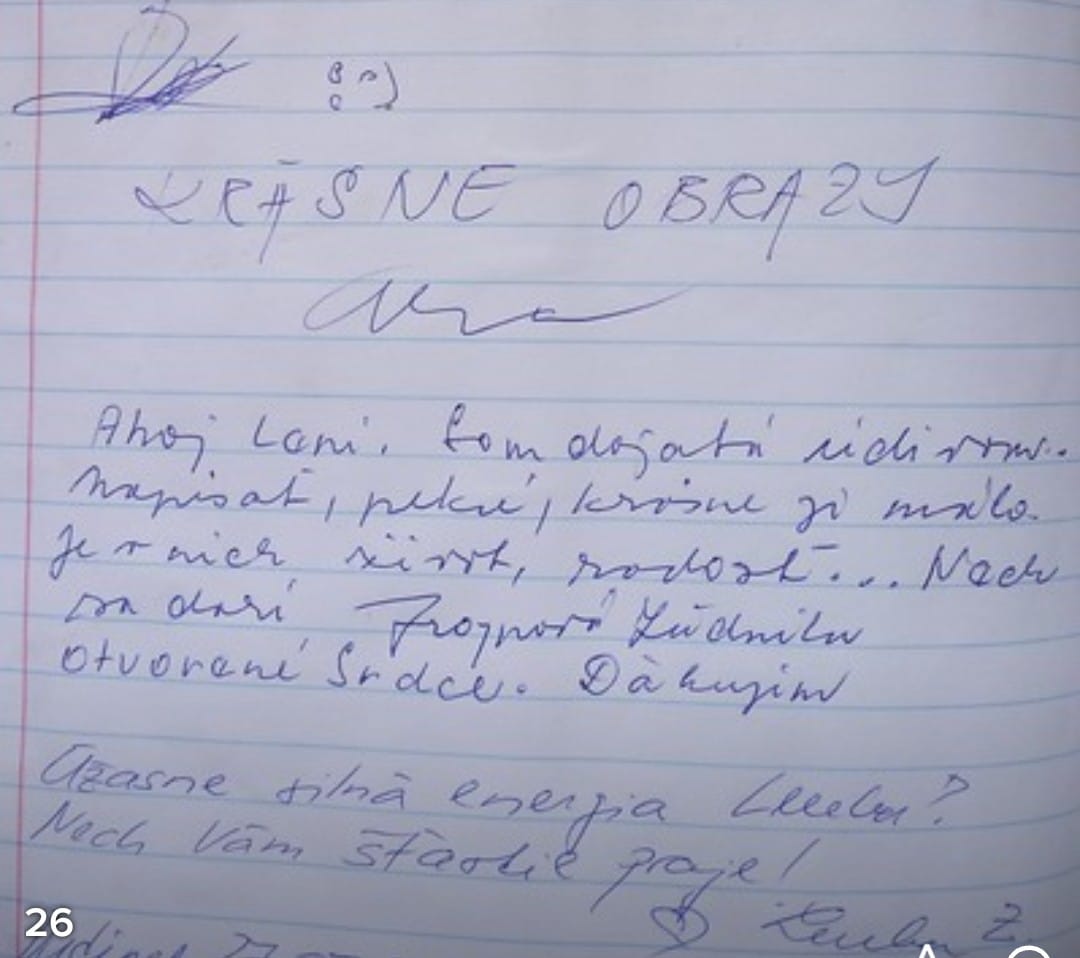 KRÁSNE OBRAZY
Ahoj Lani. Som dojatá údivom..
Napísať, pekné, krásne je málo.
Je v nich život, radosť... Nech
sa darí
Otvorené Srdce. Ďakujem
Úžasne silná energia
Nech Vám šťastie praje!
Z.
26